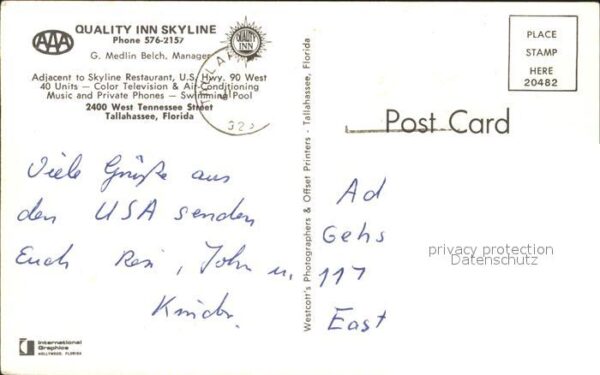 AAA
QUALITY INN SKYLINE
Phone 576-2157
G. Medlin Belch, Manager
QUALITY INN
Adjacent to Skyline Restaurant, U.S. Hwy. 90 West
40 Units — Color Television & Air-Conditioning
Music and Private Phones — Swimming Pool
2400 West Tennessee Street
Tallahassee, Florida
323
PLACE
STAMP
HERE
20482
Post Card
Viele Grüße aus
den USA senden
Euch Resi, John u.
Kinder.
Westcott's Photographers & Offset Printers - Tallahassee, Florida
Ad
Gehs
117
East
privacy protection
Datenschutz
International
Graphics
HOLLYWOOD, FLORIDA